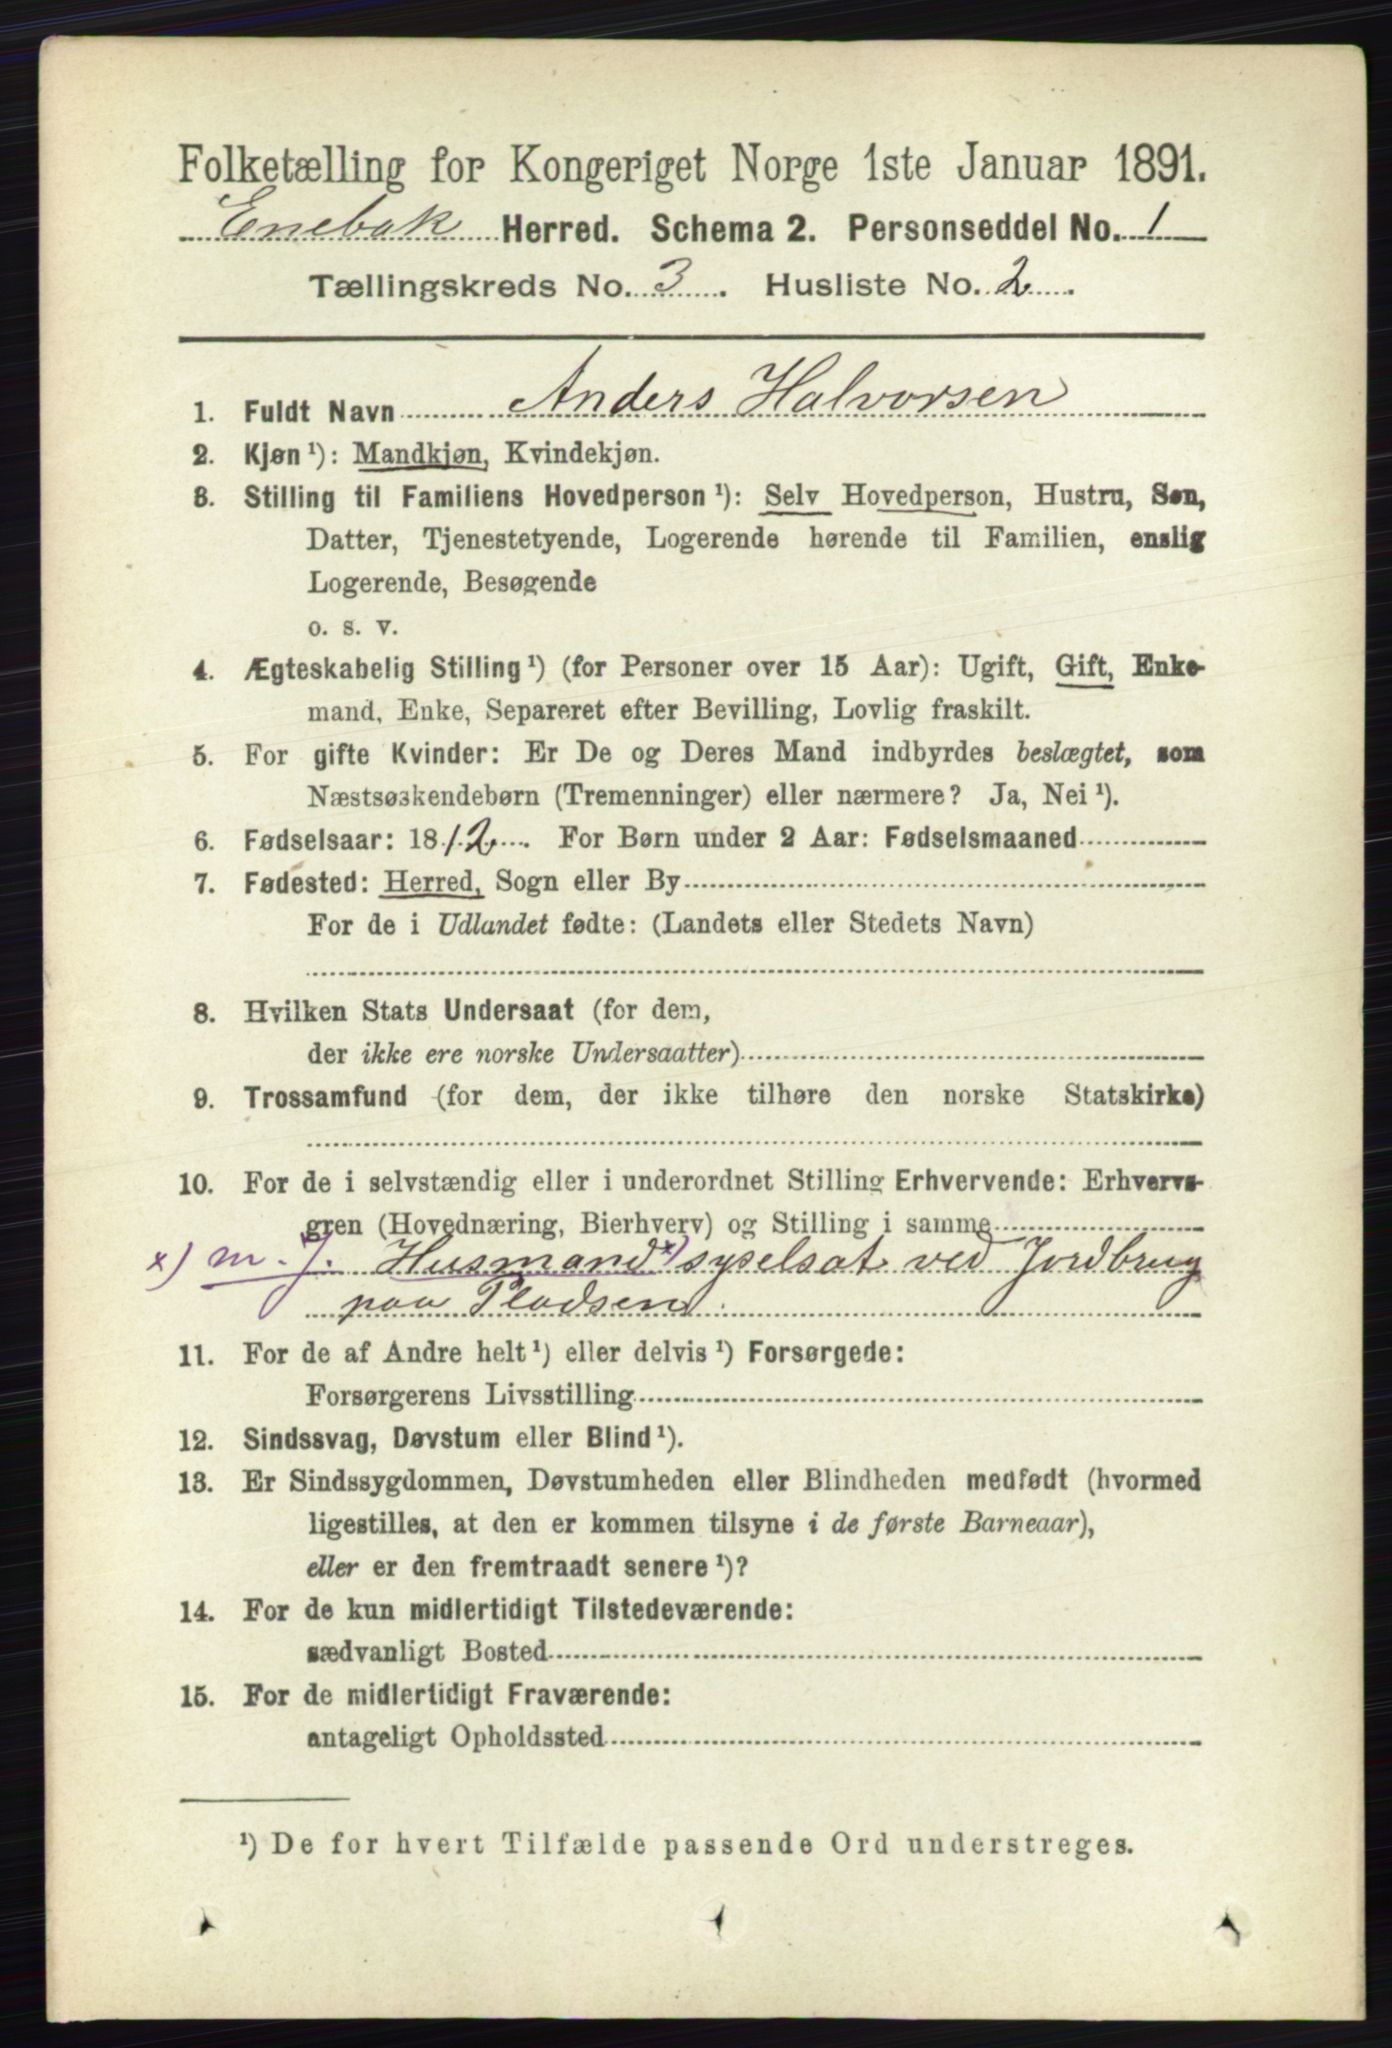 Folketælling for Kongeriget Norge 1ste Januar 1891.
Enebak Herred. Schema 2. Personseddel No. 1
Tællingskreds No. 3. Husliste No. 2.
1. Fuldt Navn Anders Halvorsen
2. Kjøn ¹): Mandkjøn, Kvindekjøn.
3. Stilling til Familiens Hovedperson ¹): Selv Hovedperson, Hustru, Søn,
Datter, Tjenestetyende, Logerende hørende til Familien, enslig
Logerende, Besøgende
o. s. v.
4. Ægteskabelig Stilling ¹) (for Personer over 15 Aar): Ugift, Gift, Enke-
mand, Enke, Separeret efter Bevilling, Lovlig fraskilt.
5. For gifte Kvinder: Er De og Deres Mand indbyrdes beslægtet, som
Næstsøskendebørn (Tremenninger) eller nærmere? Ja, Nei ¹).
6. Fødselsaar: 1812. For Børn under 2 Aar: Fødselsmaaned
7. Fødested: Herred, Sogn eller By
For de i Udlandet fødte: (Landets eller Stedets Navn)
8. Hvilken Stats Undersaat (for dem,
der ikke ere norske Undersaatter)
9. Trossamfund (for dem, der ikke tilhøre den norske Statskirke)
10. For de i selvstændig eller i underordnet Stilling Erhvervende: Erhvervs-
gren (Hovednæring, Bierhverv) og Stilling i samme
x) m. J. Husmand x) syselsat ved Jordbrug
paa Pladsen.
11. For de af Andre helt ¹) eller delvis ¹) Forsørgede:
Forsørgerens Livsstilling
12. Sindssvag, Døvstum eller Blind ¹).
13. Er Sindssygdommen, Døvstumheden eller Blindheden medfødt (hvormed
ligestilles, at den er kommen tilsyne i de første Barneaar),
eller er den fremtraadt senere ¹)?
14. For de kun midlertidigt Tilstedeværende:
sædvanligt Bosted
15. For de midlertidigt Fraværende:
antageligt Opholdssted
¹) De for hvert Tilfælde passende Ord understreges.